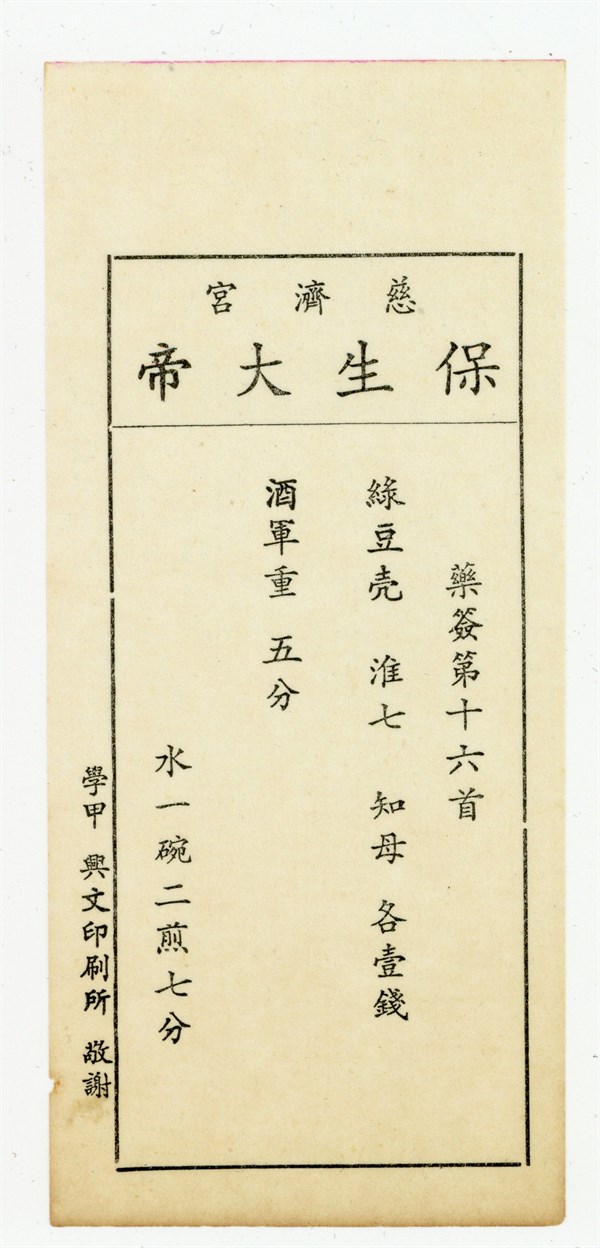 慈濟宮
保生大帝
藥簽第十六首
綠豆壳 淮七 知母 各壹錢
酒軍重 五分
水一碗二煎七分
學甲 興文印刷所 敬謝